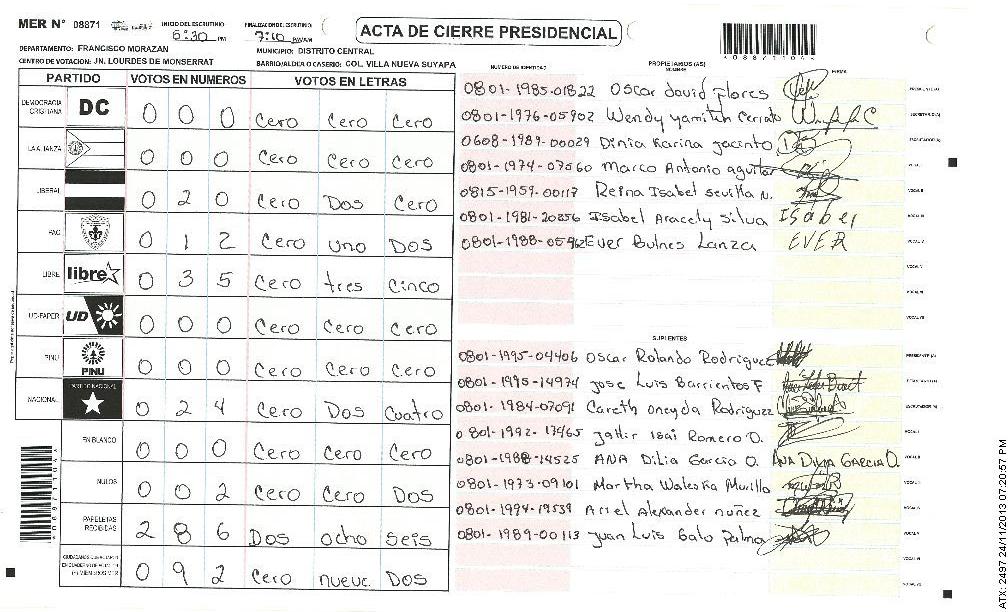 MER N° 08871
INICIO DEL ESCRUTINIO 6:30 PM
FINALIZACION DEL ESCRUTINIO: 7:10 PM/AM
ACTA DE CIERRE PRESIDENCIAL
DEPARTAMENTO: FRANCISCO MORAZAN
MUNICIPIO: DISTRITO CENTRAL
CENTRO DE VOTACION: JN. LOURDES DE MONSERRAT
BARRIO/ALDEA O CASERIO: COL. VILLA NUEVA SUYAPA
PARTIDO VOTOS EN NUMEROS VOTOS EN LETRAS
DEMOCRACIA CRISTIANA DC 0 0 0 Cero Cero Cero
LA ALIANZA 0 0 0 Cero Cero Cero
LIBERAL 0 2 0 Cero Dos Cero
PAC 0 1 2 Cero uno Dos
LIBRE libre 0 3 5 Cero tres Cinco
UD-FAPER UD 0 0 0 Cero Cero Cero
PINU PINU 0 0 0 Cero Cero Cero
NACIONAL PARTIDO NACIONAL 0 2 4 Cero Dos Cuatro
EN BLANCO 0 0 0 Cero Cero Cero
NULOS 0 0 2 Cero Cero Dos
PAPELETAS RECIBIDAS 2 8 6 Dos ocho seis
0 9 2 Cero nueve Dos
NUMERO DE IDENTIDAD
PROPIETARIOS (AS)
NOMBRE
FIRMA
0801-1985-01822 Oscar david flores
0801-1976-05902 Wendy yamileh Cerrato
0608-1989-00029 Dinia Karina jacinto
0801-1974-07560 Marco Antonio aguilar
0815-1959-00117 Reina Isabel sevilla n.
0801-1981-20356 Isabel Aracely Silva Isabel
0801-1988-05962 Ever Bulnes Lanza EVER
SUPLENTES
0801-1995-04406 Oscar Rolando Rodriguez
0801-1995-14974 jose Luis Barrientos F
0801-1984-07091 Careth oneyda Rodriguez
0801-1992-17465 jaffir Isai Romero O.
0801-1988-14525 ANA Dilia Garcia O. ANA DILIA GARCIA O.
0801-1973-09101 Martha Waleska Murillo
0801-1994-19539 Ariel Alexander nuñez
0801-1989-00113 juan Luis Galo Palma
ATX: 2497 24/11/2013 07:20:57 PM